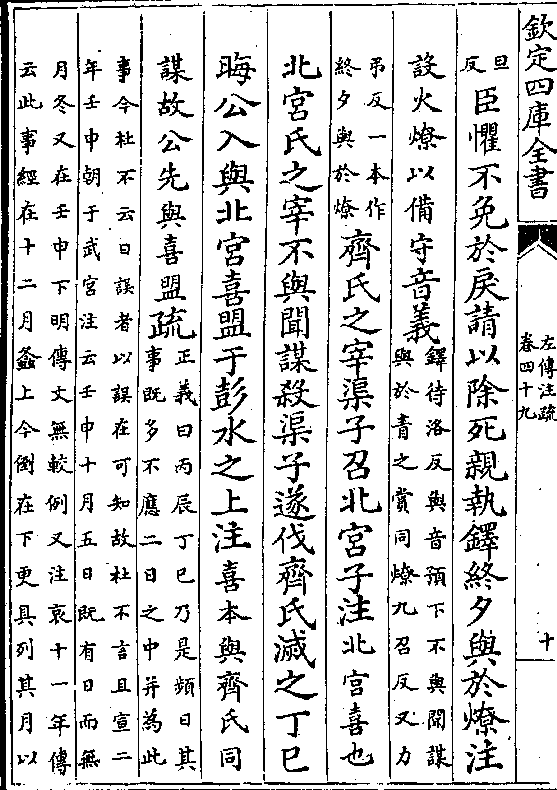 欽定四庫全書
左傳注疏
卷四十九
十
旦
反
臣懼不免於戾請以除死親執鐸終夕與於燎注
設火燎以備守音義
鐸待洛反與音預下不與聞謀
與於青之賞同燎九召反又力
弔反一本作
終夕與於燎
齊氏之宰渠子召北宮子注
北宮喜也
北宮氏之宰不與聞謀殺渠子遂伐齊氏滅之丁巳
晦公入與北宮喜盟于彭水之上注
喜本與齊氏同
謀故公先與喜盟疏
正義曰丙辰丁巳乃是頻日其
事既多不應二日之中并為此
事今杜不云日誤者以誤在可知故杜不言且宣二
年壬申朝于武宮注云壬申十月五日既有日而無
月冬又在壬申下明傳文無較例又注哀十一年傳
云此事經在十二月螽上今倒在下更具列其月以